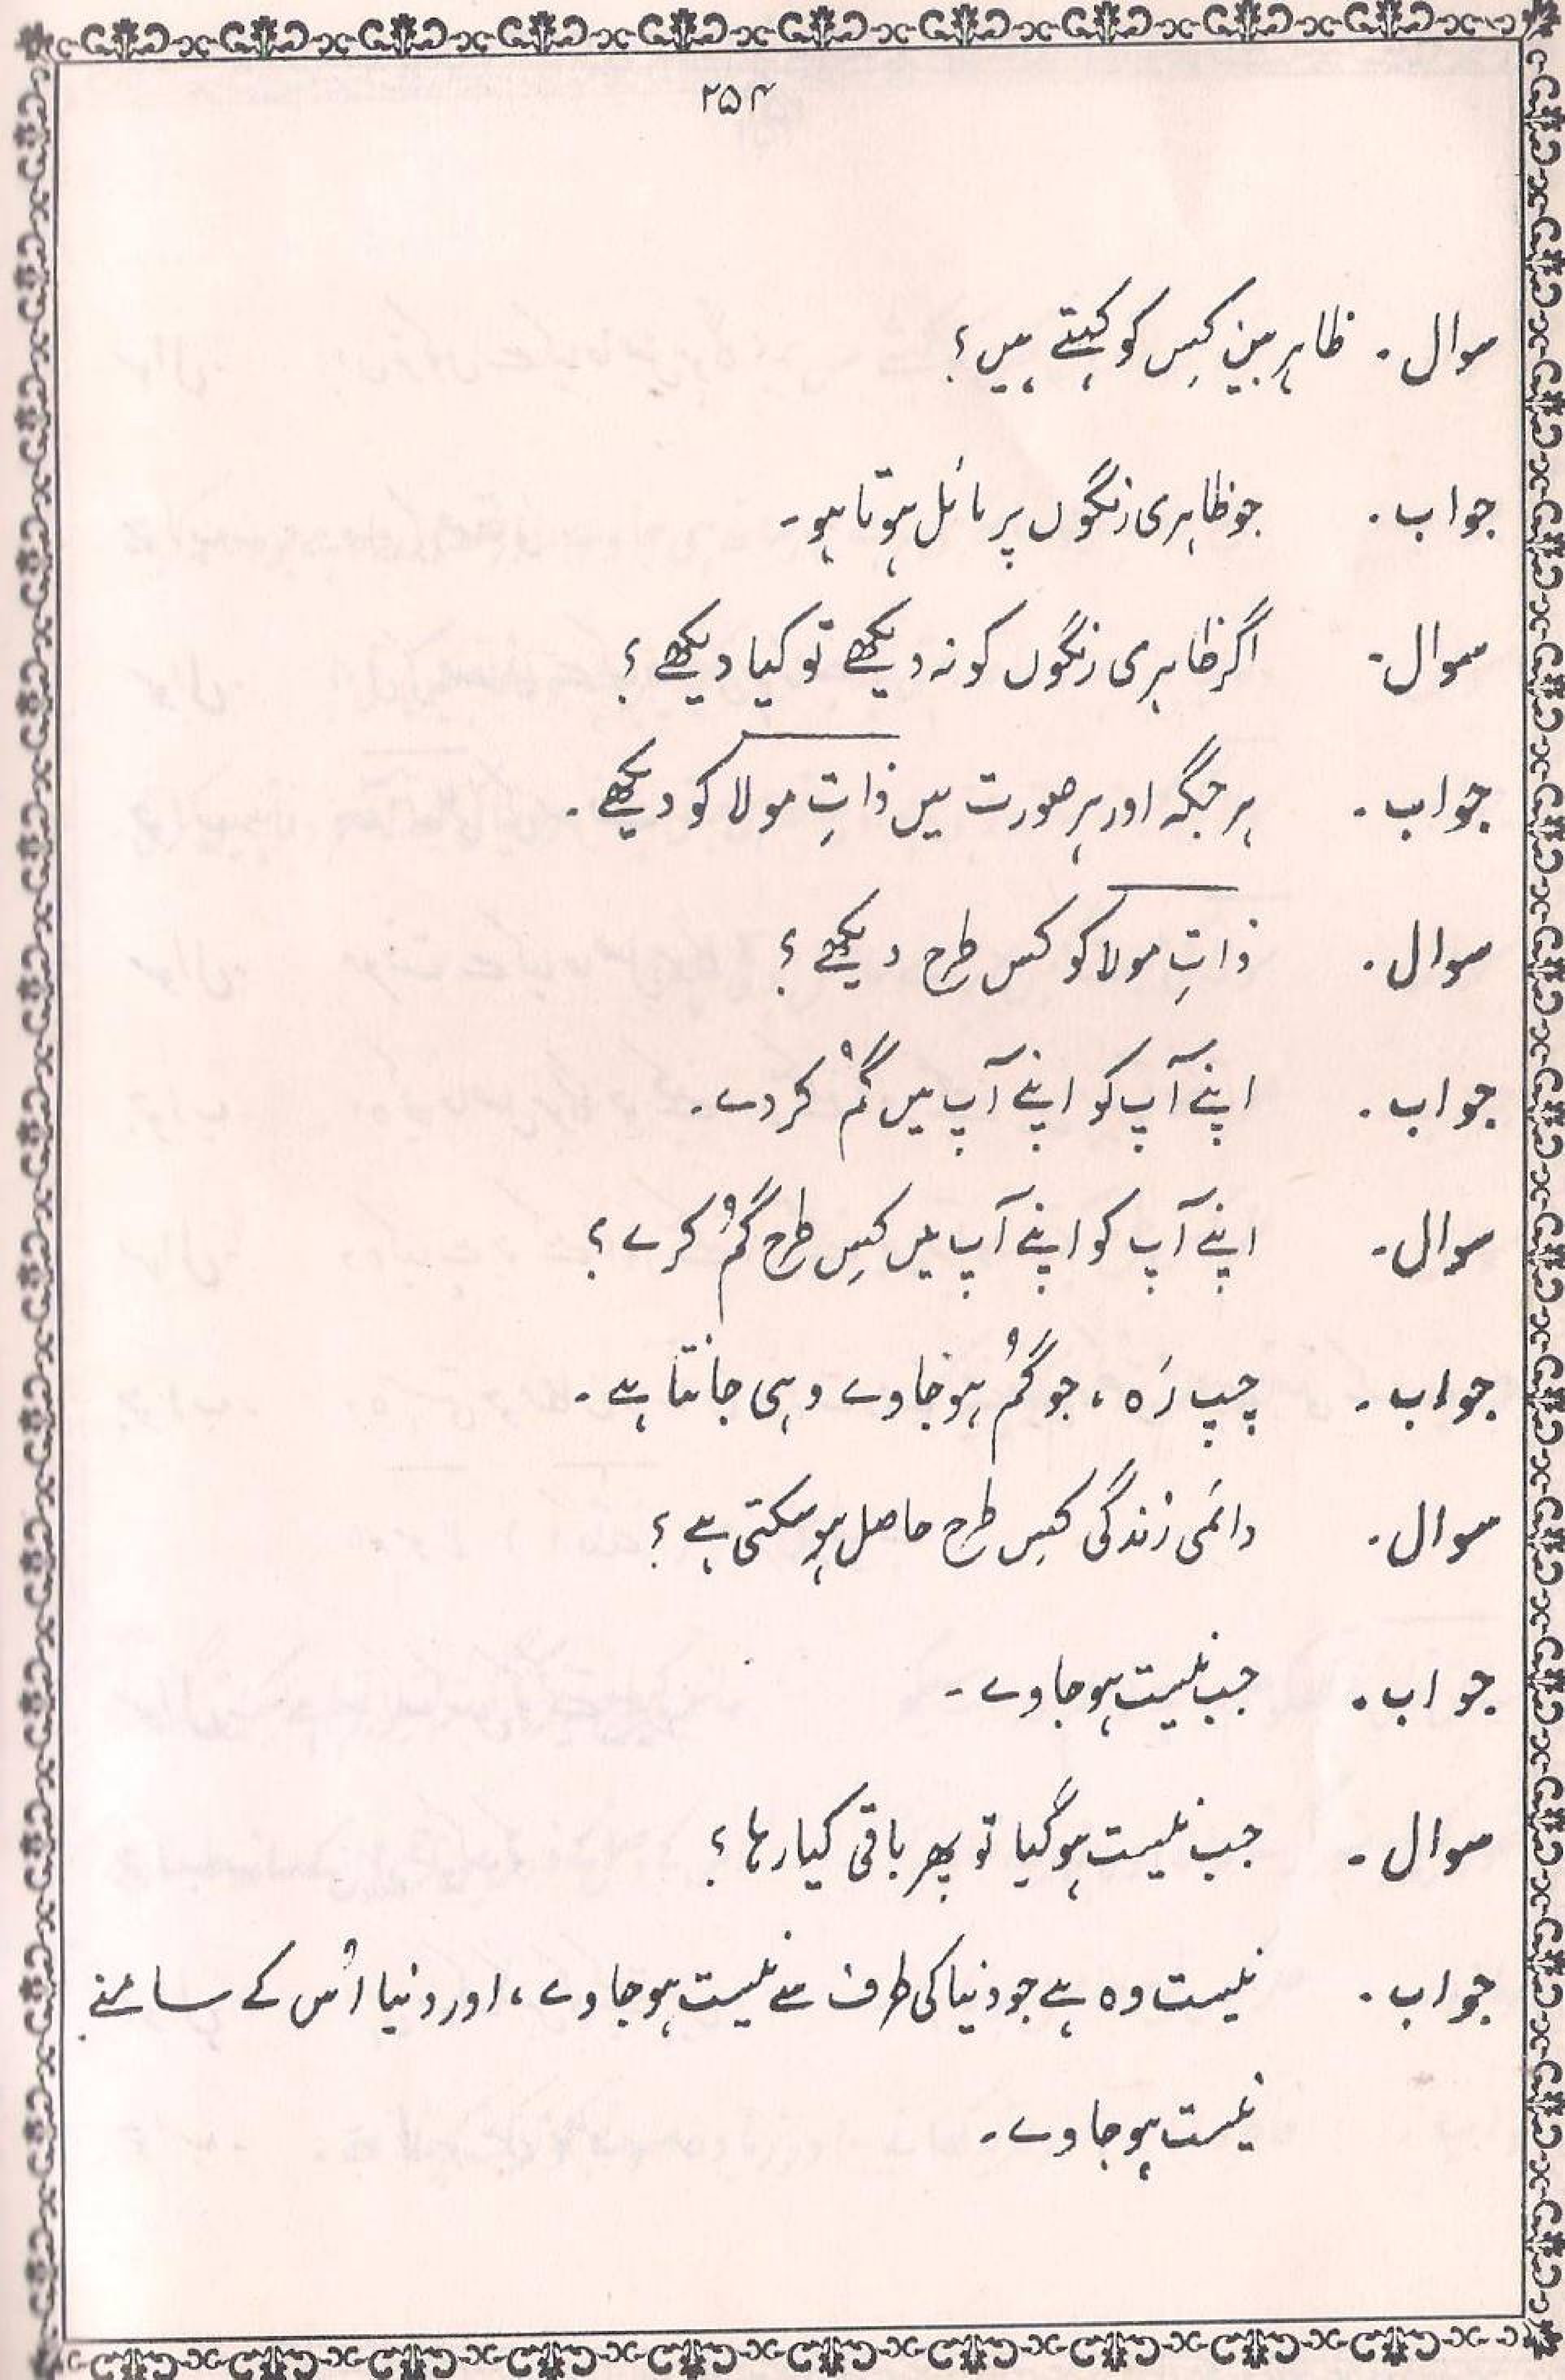 ۲۵۴
سوال۔ ظاہر بین کِس کو کہتے ہیں؟
جواب۔ جو ظاہری رنگوں پر مائل ہوتا ہو۔
سوال۔ اگر ظاہری رنگوں کو نہ دیکھے تو کیا دیکھے؟
جواب۔ ہر جگہ اور ہر صورت میں ذاتِ مولا کو دیکھے۔
سوال۔ ذاتِ مولا کو کس طرح دیکھے؟
جواب۔ اپنے آپ کو اپنے آپ میں گُم کر دے۔
سوال۔ اپنے آپ کو اپنے آپ میں کِس طرح گُم کرے؟
جواب۔ چپ رَہ، جو گُم ہو جاوے وہی جانتا ہے۔
سوال۔ دائمی زندگی کِس طرح حاصل ہو سکتی ہے؟
جواب۔ جب نیست ہو جاوے۔
سوال۔ جب نیست ہو گیا تو پھر باقی کیا رہا؟
جواب۔ نیست وہ ہے جو دنیا کی طرف سے نیست ہو جاوے، اور دنیا اُس کے سامنے
نیست ہو جاوے۔